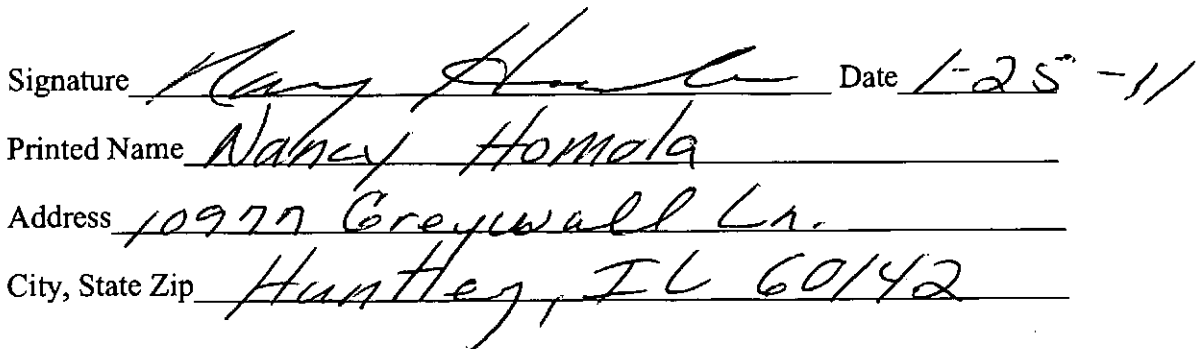 Signature Nancy Homola Date 1-25-11
Printed Name Nancy Homola
Address 10977 Greywall Ln.
City, State Zip Huntley, IL 60142